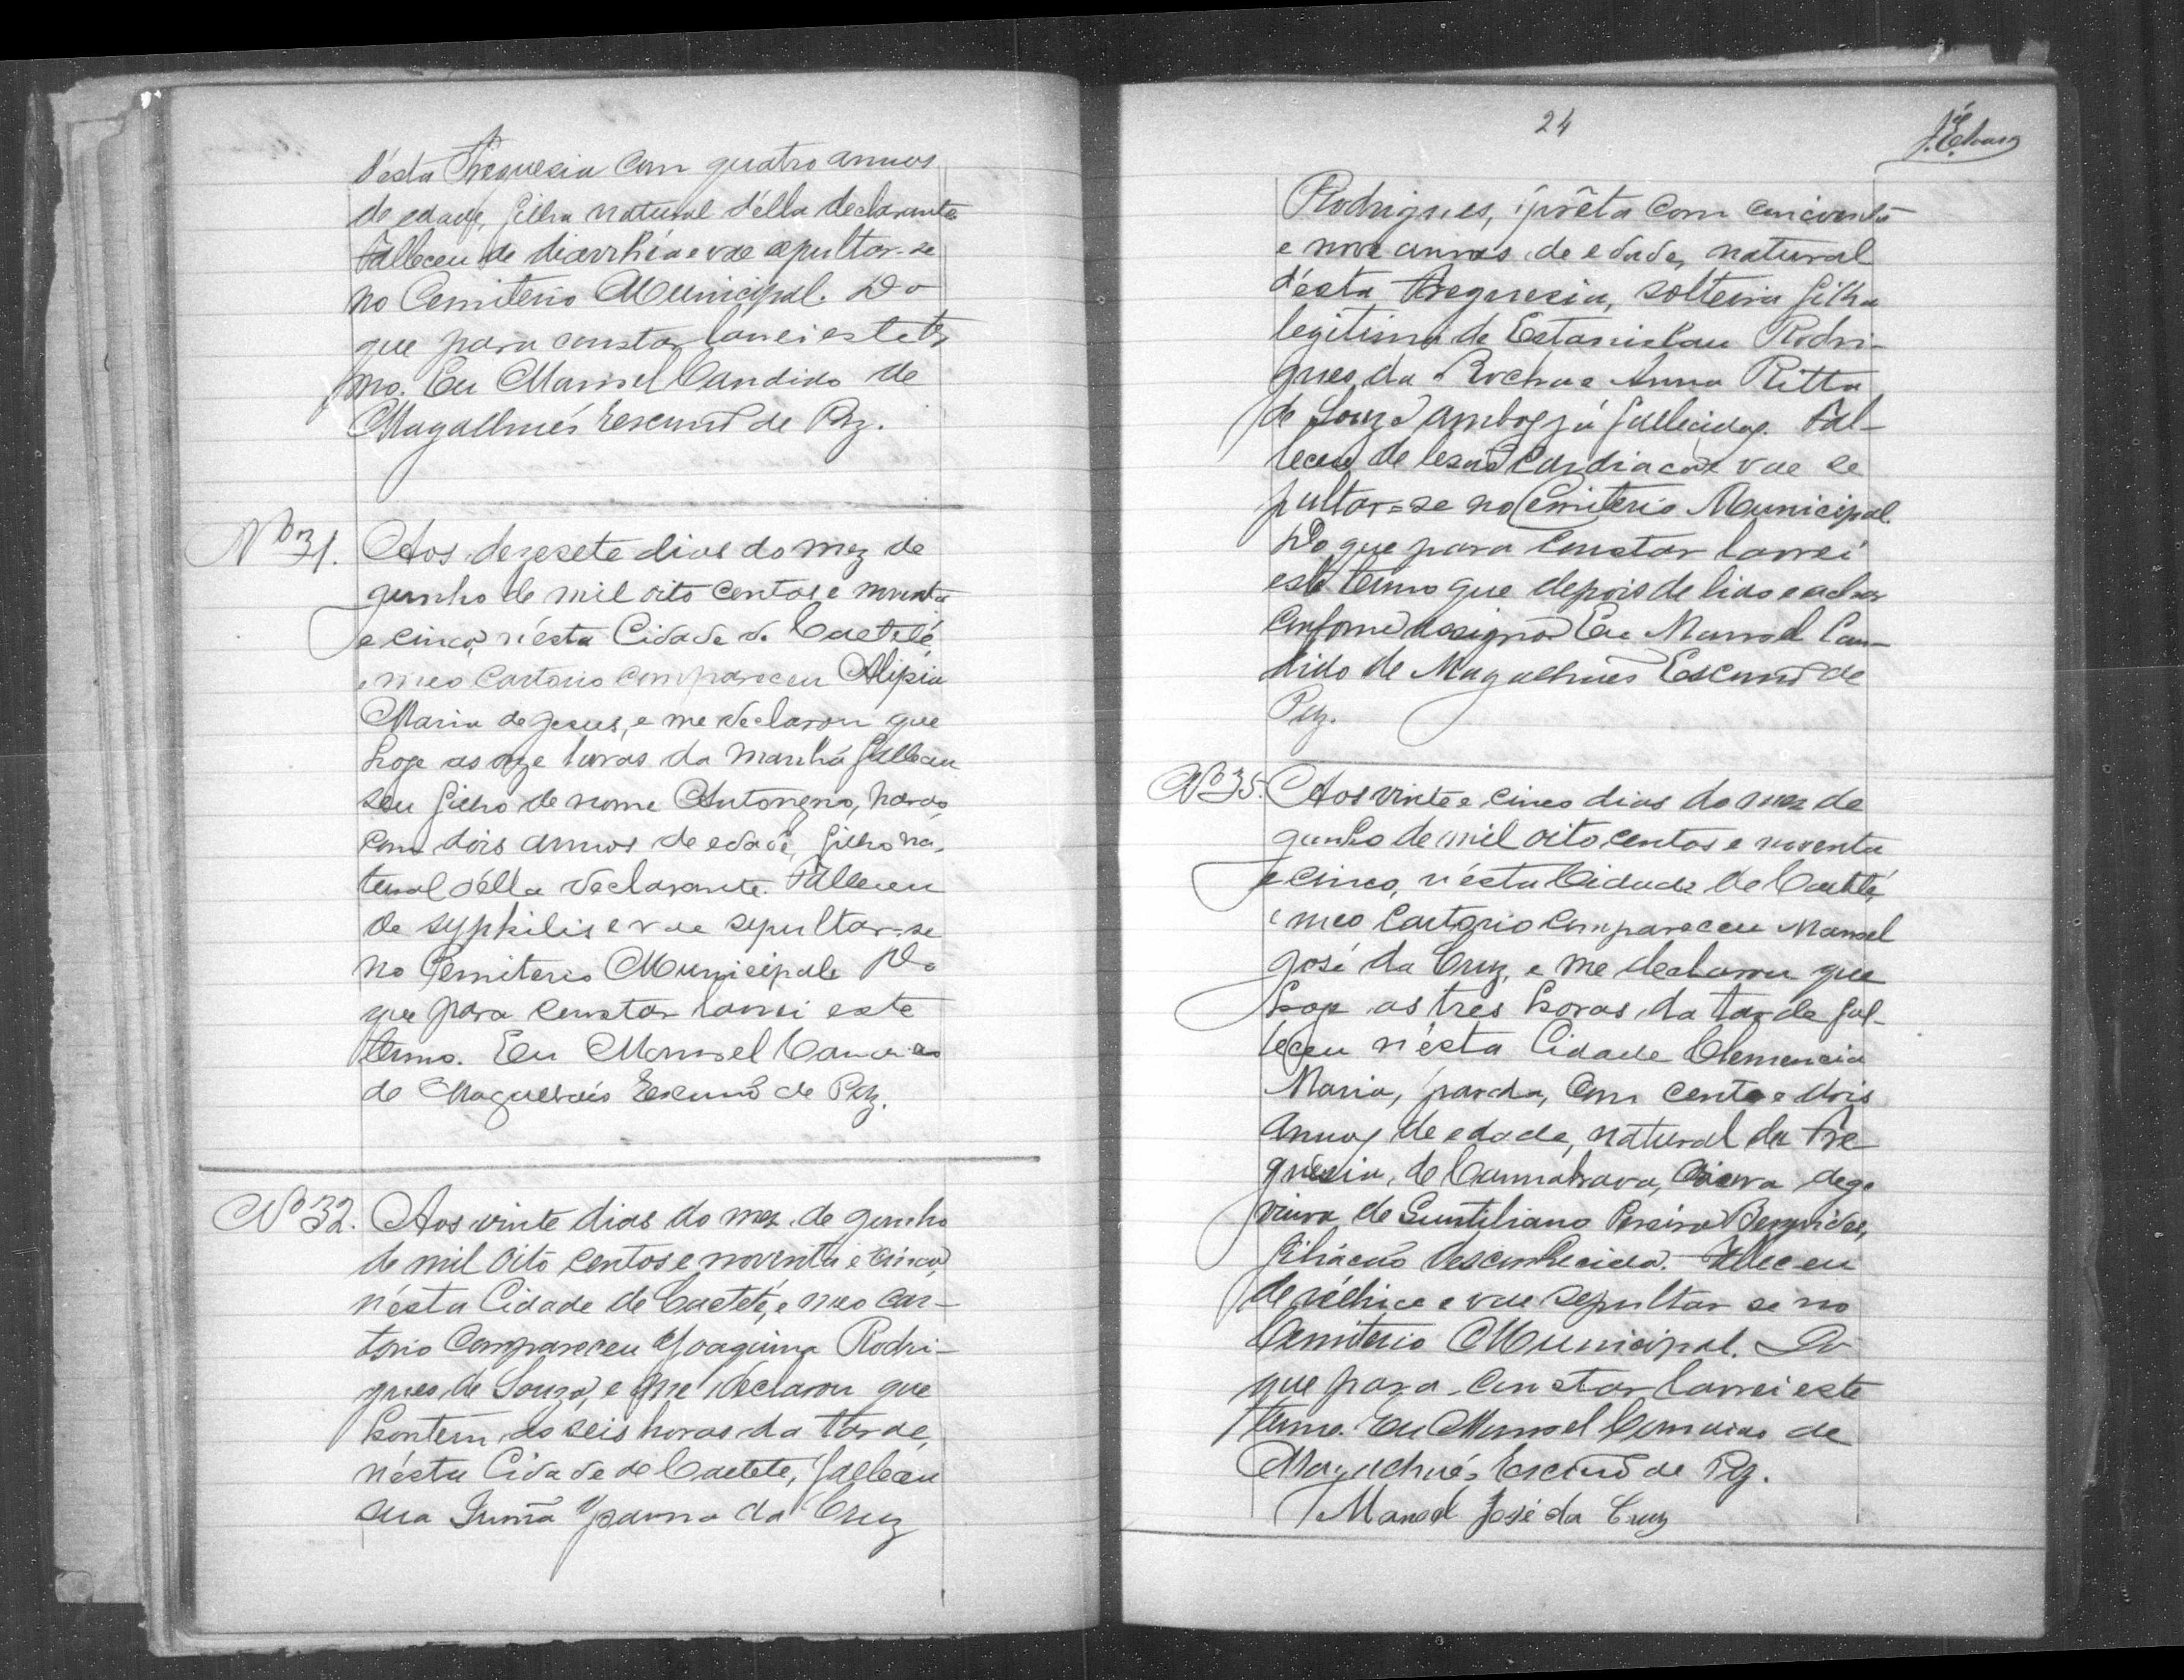 d'ésta Freguesia com quatro annos
de edade, filha natural d'élla declarante
Falleceu de diarrhéa e vae sepultar-se
no Cemiterio Municipal. Do
que para constar lavrei este ter,
mo. Eu Manoel Candido de
Magalhães Escrivão de Paz.
Nº 31. Aos dezesete dias do mez de
junho de mil oito centos e noventa
e cinco, n'ésta Cidade de Caeteté
e meo Cartorio compareceu Alipia
Maria de Jesus, e me declarou que
hoje as onze horas da manhã falleceu
seu filho de nome Antongno, pardo,
com dois annos de edade, filho na-
tural d'élla declarante. Falleceu
de syphilis e vae sepultar-se
no Cemiterio Municipal. Do
que para constar lavrei este
termo. Eu Manoel Candido
de Magalhães Escrivão de Paz.
Nº 32. Aos vinte dias do mez de junho
de mil oito centos e noventa e cinco,
n'ésta Cidade de Caeteté, e meo Car-
torio compareceu Joaquina Rodri-
gues de Souza, e me declarou que
hontem, ás seis horas da tarde,
n'ésta Cidade de Caeteté, falleceu
sua Irmã Joanna da Cruz
24
Rodrigues, prêta com cincoenta
e nove annos de edade, natural
d'ésta Freguesia, solteira filha
legitima de Estanislau Rodri-
gues da Rocha e Anna Ritta
de Souza ambos já fallecidos. Fal-
leceu de lesão Cardiaca e vae se
pultar=se no Cemiterio Municipal.
Do que para constar lavrei
este termo que depois de lido e achar
conforme assigna. Eu Manoel Can-
dido de Magalhães Escrivão de
Paz.
Nº 35. Aos vinte e cinco dias do mez de
junho de mil oito centos e noventa
e cinco, n'ésta Cidade de Caeteté,
e meo Cartorio compareceu Manoel
José da Cruz, e me declarou que
hoje as tres horas da tarde fal-
leceu n'ésta Cidade Clemencia
Maria, parda, com cento e dois
annos de edade, natural da Fre-
guesia de Cannabrava, digo
viuva de Pereira
filiação desconhecida. Falleceu
de vélhice e vae sepultar se no
Cemiterio Municipal. Do
que para constar lavrei este
termo. Eu Manoel Candido de
Magalhães Escrivão de Paz.
Manoel José da Cruz